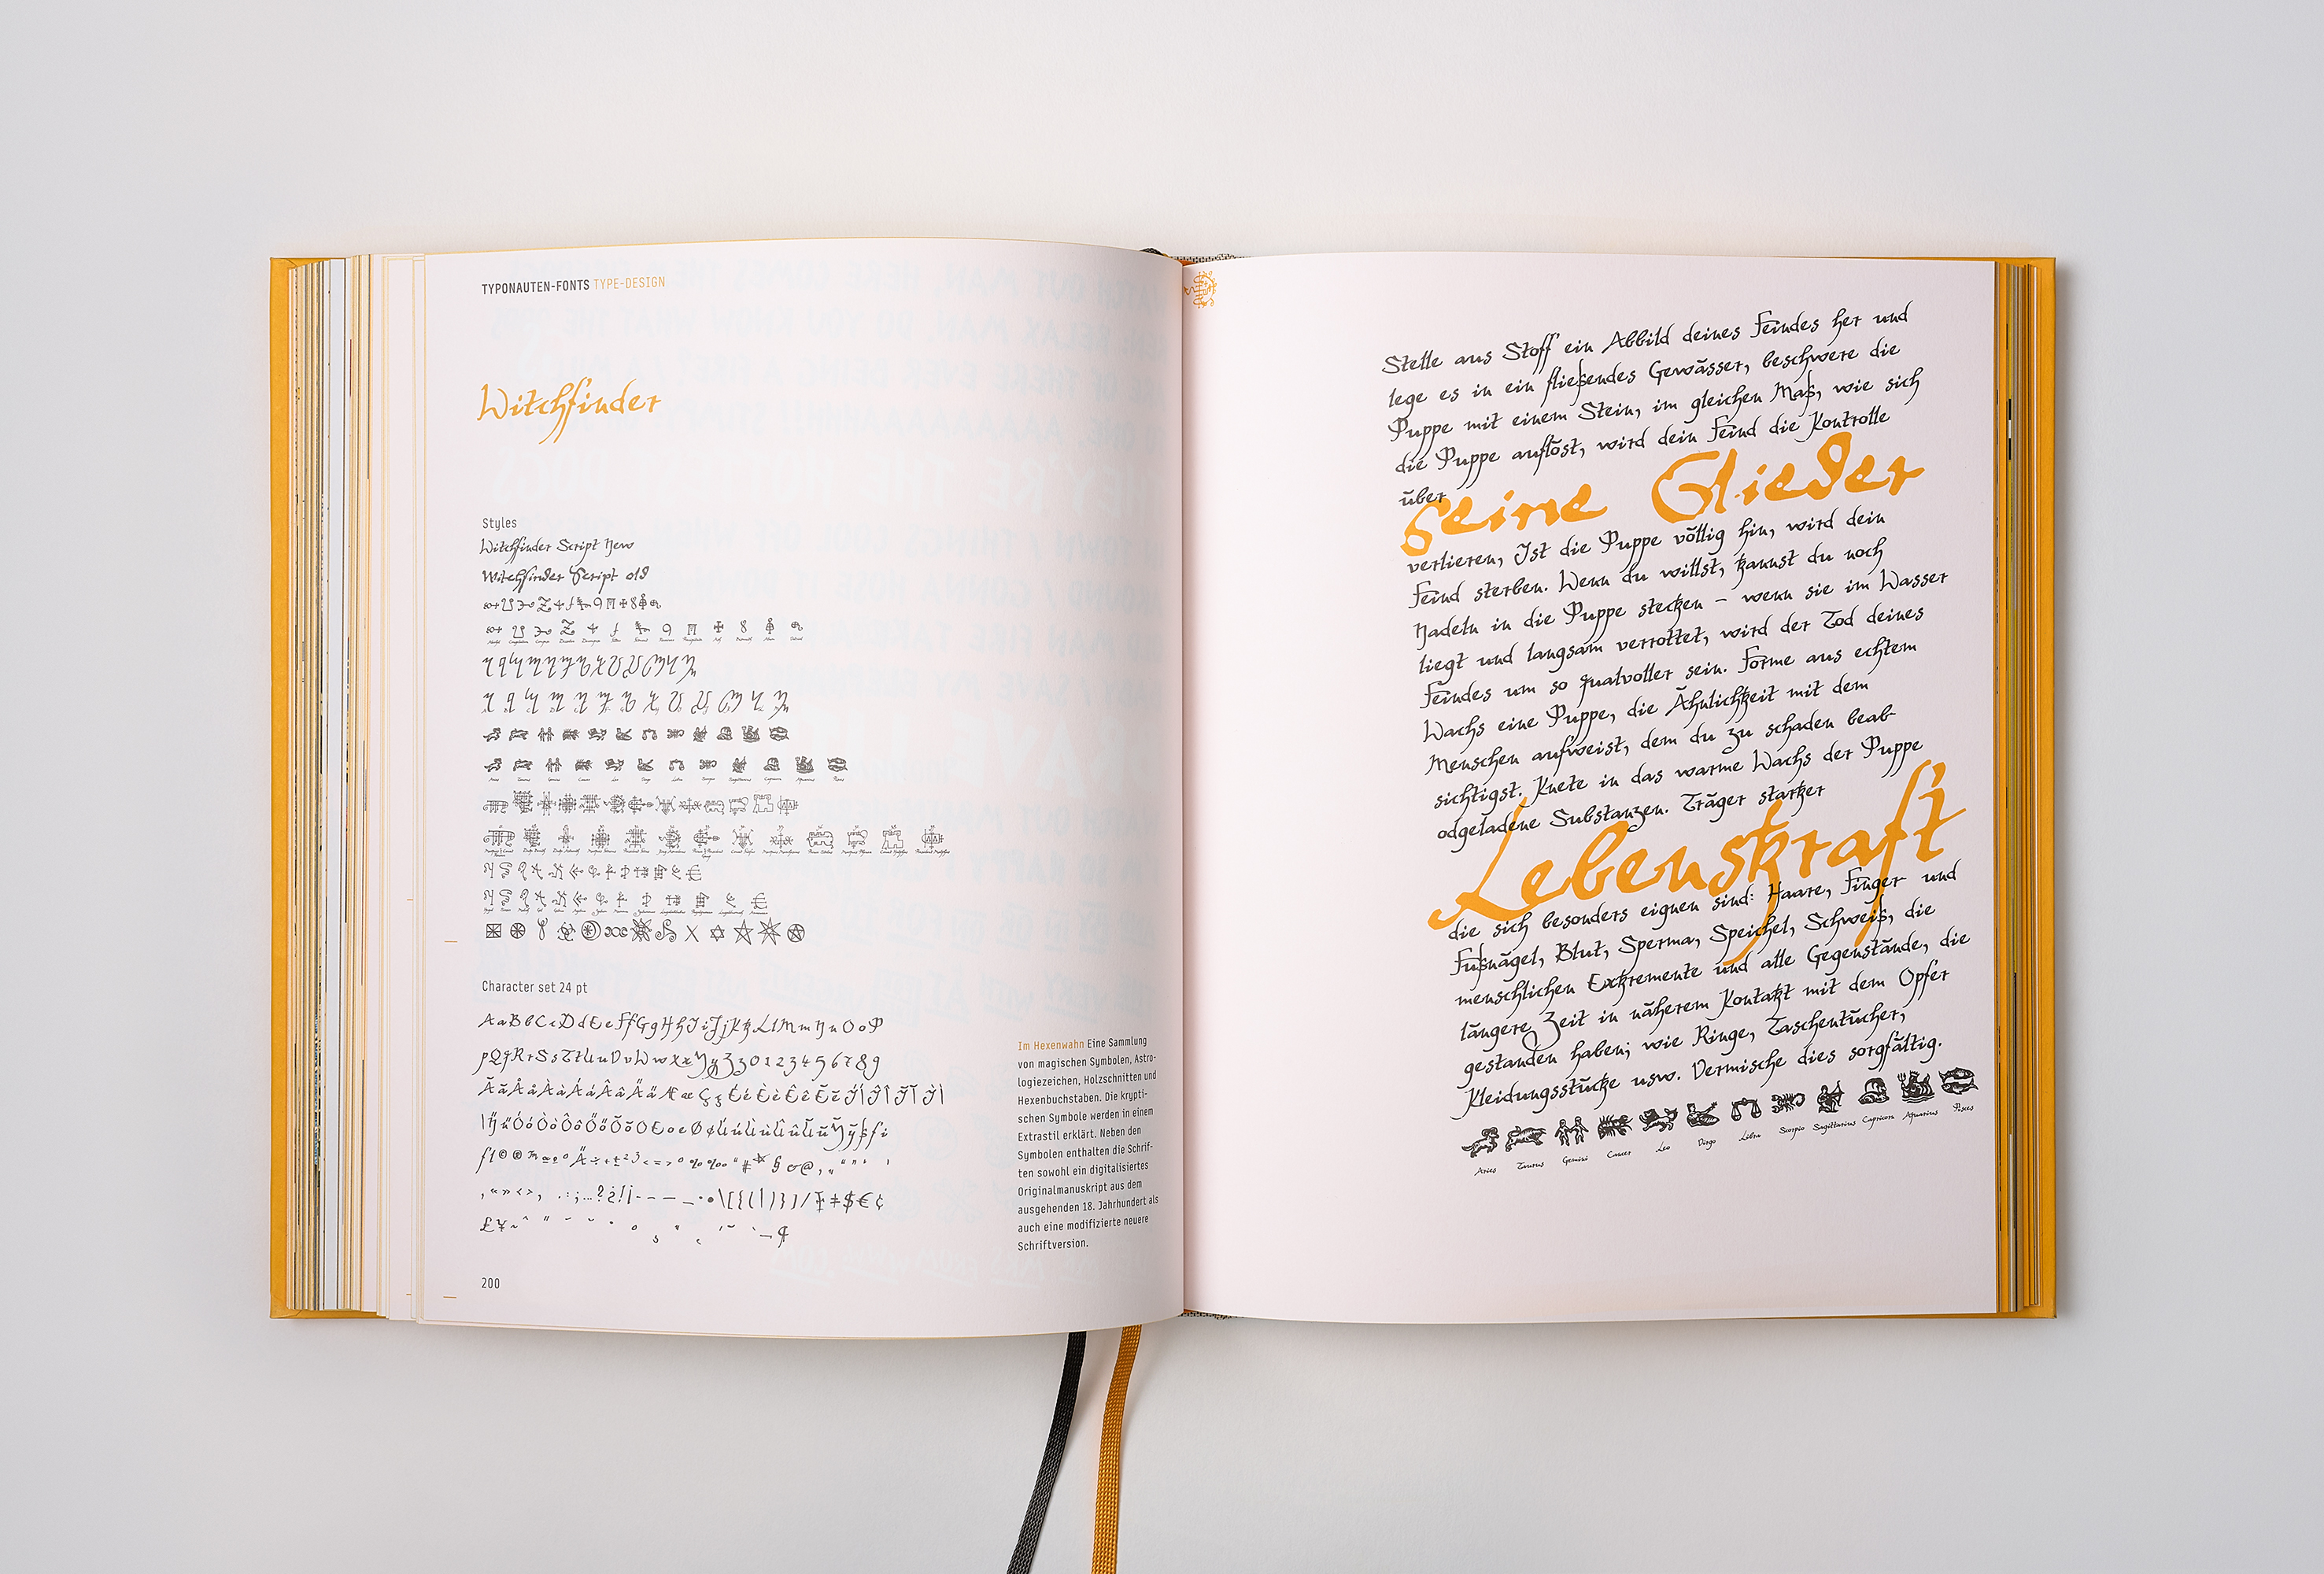 TYPONAUTEN-FONTS TYPE-DESIGN
Witchfinder
Styles
Witchfinder Script New
Witchfinder Script old
Character set 24 pt
AaBbCcDdEeFfGgHhIiJjKkLlMmNnOoP
pQqRrSsTtUuVvWwXxYyZz0123456789
Im Hexenwahn Eine Sammlung
von magischen Symbolen, Astro-
logiezeichen, Holzschnitten und
Hexenbuchstaben. Die krypti-
schen Symbole werden in einem
Extrastil erklärt. Neben den
Symbolen enthalten die Schrif-
ten sowohl ein digitalisiertes
Originalmanuskript aus dem
ausgehenden 18. Jahrhundert als
auch eine modifizierte neuere
Schriftversion.
200
Stelle aus Stoff ein Abbild deines Feindes her und
lege es in ein fließendes Gewässer, beschwere die
Puppe mit einem Stein, im gleichen Maß, wie sich
die Puppe auflöst, wird dein Feind die Kontrolle
über
seine Glieder
verlieren, Ist die Puppe völlig hin, wird dein
Feind sterben. Wenn du willst, kannst du noch
Nadeln in die Puppe stecken – wenn sie im Wasser
liegt und langsam verrottet, wird der Tod deines
Feindes um so qualvoller sein. Forme aus echtem
Wachs eine Puppe, die Ähnlichkeit mit dem
Menschen aufweist, dem du zu schaden beab-
sichtigst. Knete in das warme Wachs der Puppe
odgeladene Substanzen. Träger starker
Lebenskraft
die sich besonders eignen sind: Haare, Finger und
Fußnägel, Blut, Sperma, Speichel, Schweiß, die
menschlichen Exkremente und alle Gegenstände, die
längere Zeit in näherem Kontakt mit dem Opfer
gestanden haben; wie Ringe, Taschentücher,
Kleidungsstücke usw. Vermische dies sorgfältig.
Aries Taurus Gemini Cancer Leo Virgo Libra Scorpio Sagittarius Capricorn Aquarius Pisces